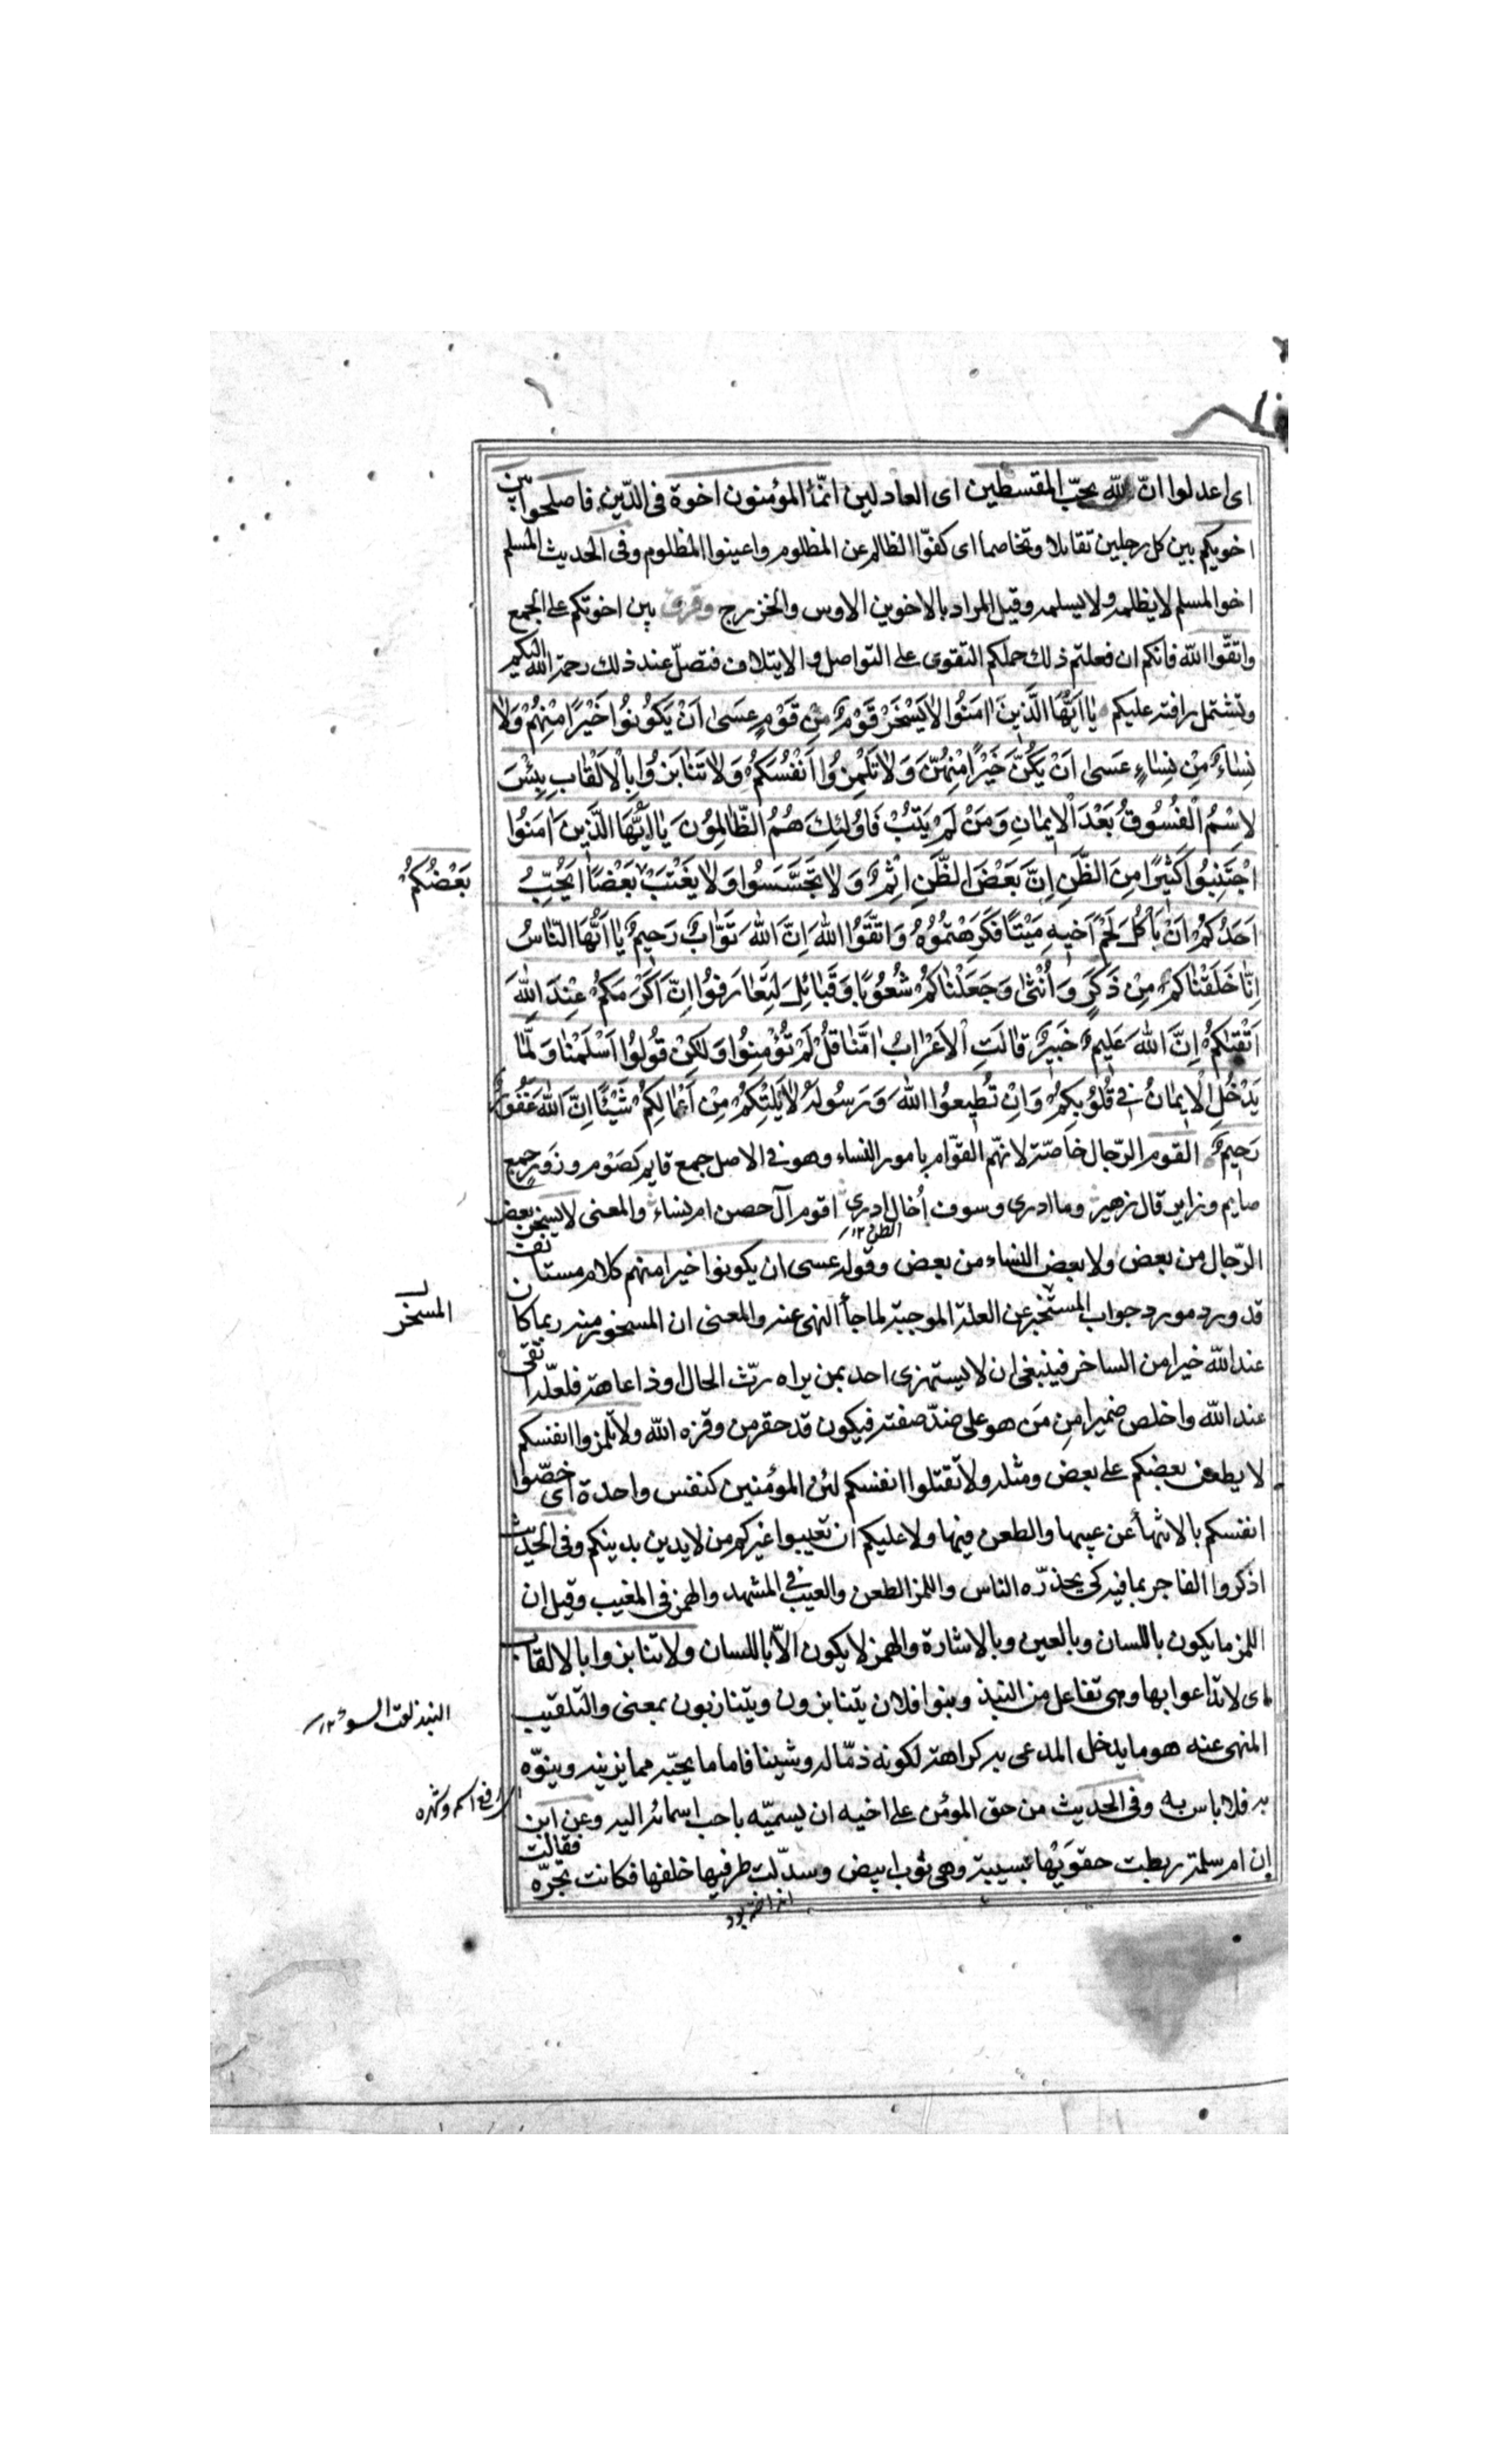 اى اعدلوا انّ الله يحبّ المقسطين اى العادلين انّما المؤمنون اخوة فى الدّين فاصلحوا بين
اخويكم بين كل رجلين تقاتلا وتخاصما اى كفوّا الظالم عن المظلوم واعينوا المظلوم وفى الحديث المسلم
اخوا لمسلم لا يظلمه ولا يسلمه وقيل المراد بالاخوين الاوس والخزرج وقرئ بين اخوتكم على الجمع
واتقّوا الله فانكم ان فعلتم ذلك حملكم التقوى على التواصل والايتلاف فتصلّ عند ذلك رحمة الله اليكم
وتشتمل رافته عليكم يٰا اَيُّهَا الَّذينَ اٰمَنُوا لاٰ يَسْخَرْ قَوْمٌ مِنْ قَوْمٍ عَسىٰ اَنْ يَكُونُوا خَيْرًا مِنْهُمْ وَلاٰ
نِسٰاءٌ مِنْ نِسٰاءٍ عَسىٰ اَنْ يَكُنَّ خَيْرًا مِنْهُنَّ وَلاٰ تَلْمِزُوا اَنْفُسَكُمْ وَلاٰ تَنٰابَزُوا بِالْاَلْقٰابِ بِئْسَ
لاِسْمُ الْفُسُوقُ بَعْدَ الْايمٰانِ وَمَنْ لَمْ يَتُبْ فَاُولٰئِكَ هُمُ الظّٰالِمُونَ يٰا اَيُّهَا الَّذينَ اٰمَنُوا
اجْتَنِبُوا كَثيرًا مِنَ الظَّنِّ اِنَّ بَعْضَ الظَّنِّ اِثْمٌ وَلاٰ تَجَسَّسُوا وَلاٰ يَغْتَبْ بَعْضًا اَيُحِبُّ
بَعْضُكُمْ
اَحَدُكُمْ اَنْ يَاْكُلَ لَحْمَ اَخيهِ مَيْتًا فَكَرِهْتُمُوُهُ وَاتَّقُوا اللهَ اِنَّ اللهَ تَوّٰابٌ رَحيمٌ يٰا اَيُّهَا النّٰاسُ
اِنّٰا خَلَقْنٰاكُمْ مِنْ ذَكَرٍ وَاُنْثىٰ وَجَعَلْنٰاكُمْ شُعُوبًا وَقَبٰائِلَ لِتَعٰارَفُوا اِنَّ اَكْرَمَكُمْ عِنْدَ اللهِ
اَتْقٰيكُمْ اِنَّ اللهَ عَليمٌ خَبيرٌ قٰالَتِ الْاَعْرٰابُ اٰمَنّٰا قُلْ لَمْ تُؤْمِنُوا وَلٰكِنْ قُولُوا اَسْلَمْنٰا وَلَمّٰا
يَدْخُلِ الْايمٰانُ فى قُلُوبِكُمْ وَاِنْ تُطيعُوا اللهَ وَرَسُولَهُ لاٰ يَلِتْكُمْ مِنْ اَعْمٰالِكُمْ شَيْئًا اِنَّ اللهَ غَفُورٌ
رَحيمٌ القوم الرّجال خاصّة لانهّم القوّام بامور النساء وهو فى الاصل جمع قايم كصَوْم وزَوْر جمع
صايم وزاير قال زهير وما ادرى وسوف اُخال ادرى اقوم آل حصن ام نساء والمعنى لا يسخر بعض
الظن ١٢
الرّجال من بعض ولا بعض النساء من بعض وقوله عسى ان يكونوا خيرا منهم كلام مستانف
قد ورد مورد جواب المستخبر عن العلة الموجبة لما جأ النهى عنه والمعنى ان المسخور منه ربما كان
عند الله خيرا من الساخر فينبغى ان لا يستهزى احد بمن يراه رثّ الحال او ذا عاهة فلعلّه اتقى
عند الله واخلص ضميرا مِن مَن هو على ضدّ صفته فيكون قد حقر من وقره الله ولا تلمزوا انفسكم
لا يطعن بعضكم على بعض ومثله ولا تقتلوا انفسكم لئن المؤمنين كنفس واحدة اى خصّوا
انفسكم بالانتهأ عن عيبها والطعن فيها ولا عليكم ان تعيبوا غيركم من لا يدين بدينكم وفى الحديث
اذكروا الفاجر بما فيه كى يحذرّه الناس واللمز الطعن والعيب فى المشهد والهمز فى المغيب وقيل ان
اللمز ما يكون باللسان وبالعين وبالاشارة والهمز لا يكون الاّ باللسان ولا تنابزوا بالالقاب
اى لا تداعوا بها وهى تفاعل من النبذ وبنوا فلان يتنابزون ويتنازبون بمعنى والتلقيب
النبذ لقب السوء ١٢
المنهى عنه هو ما يدخل المدعى به كراهة لكونه ذمّا له وشينا فاما ما يحبّه مما يزينه وينوّه
به فلا باس به وفى الحديث من حق المؤمن على اخيه ان يسميّه باحب اسمائه اليه وعن ابن
إن ام سلمة ربطت حقوَيْها بسبيبة وهى ثوب ابيض وسدّلت طرفيها خلفها فكانت تجرّه فقالت